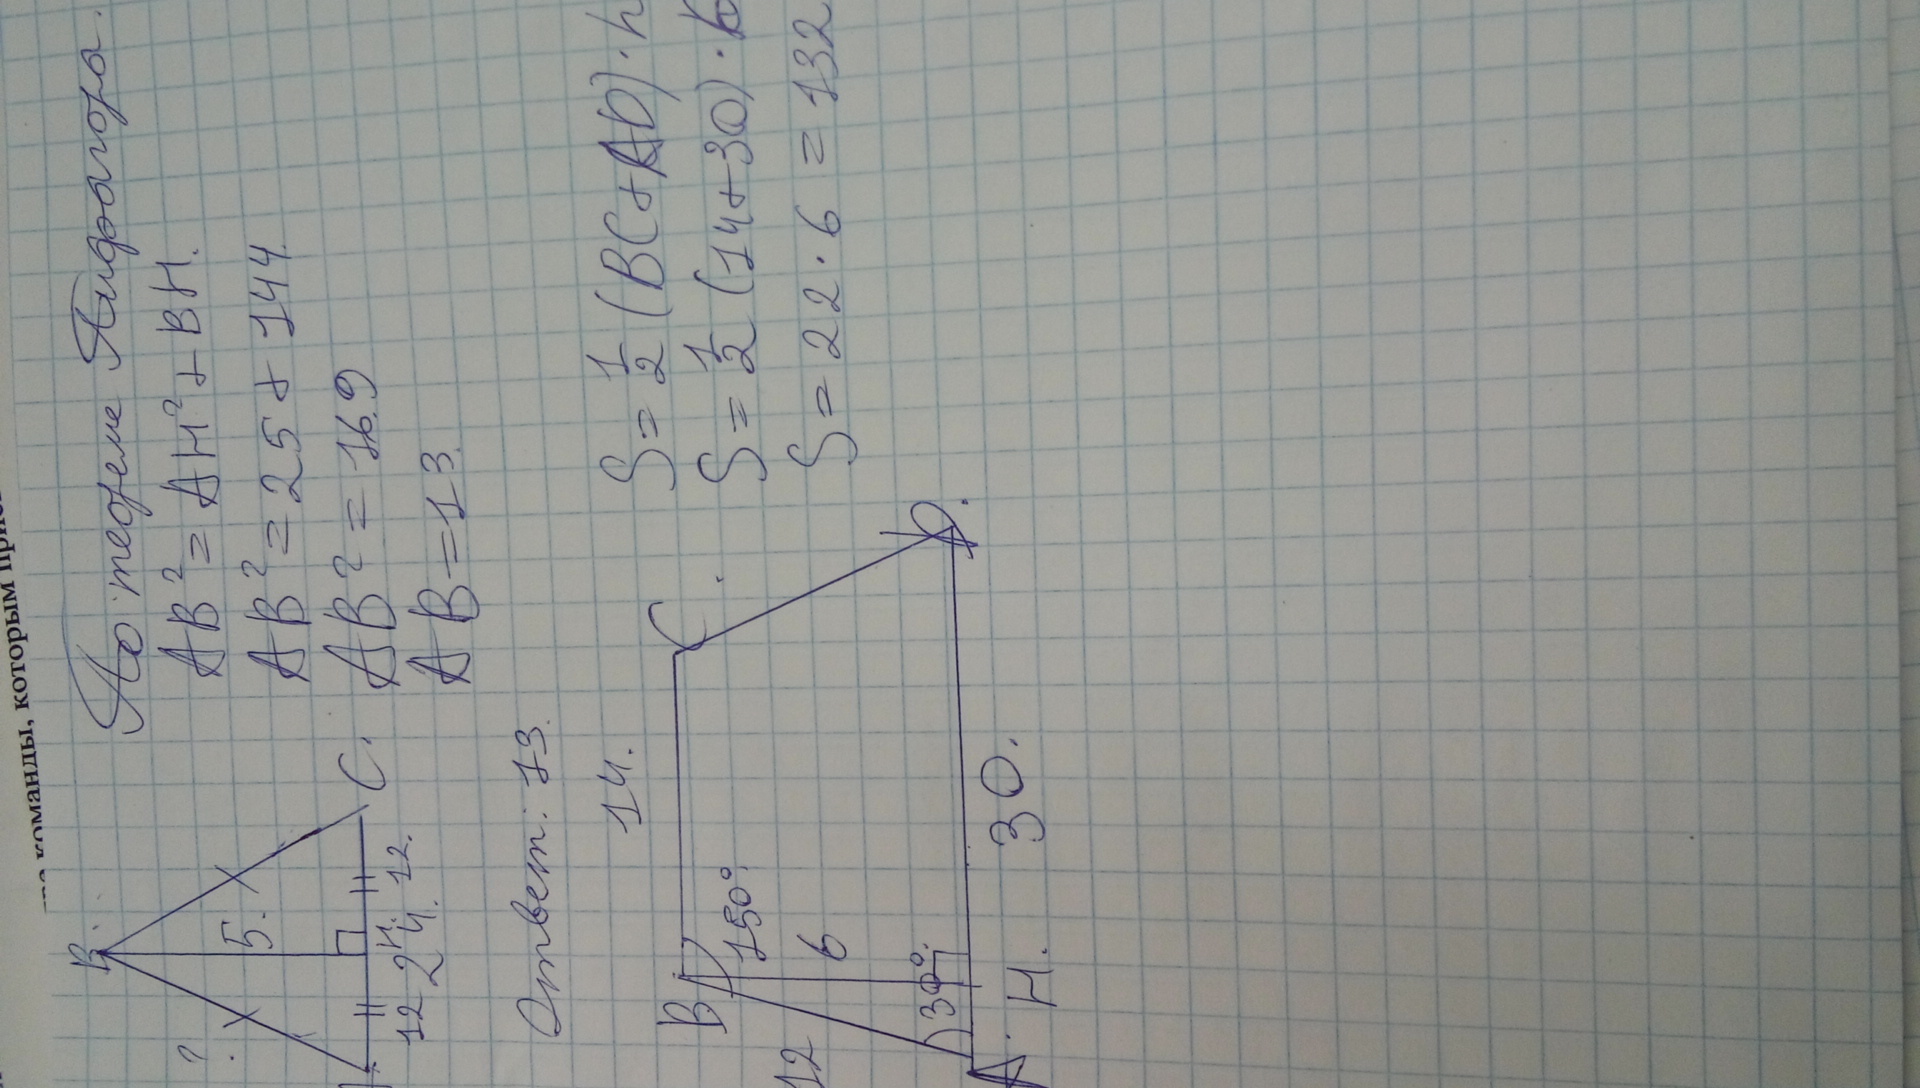 команды, которым
По теореме Пифагора.
AB² = AH² + BH.
AB² = 25 + 144.
AB² = 169
AB = 13.
B.
?
5.
C.
12 H. 12.
24.
Ответ: 13.
14.
B
C.
150°.
12
6
30°.
A.
H.
30.
D.
S = 1/2 (BC + AD) · h
S = 1/2 (14 + 30) · 6
S = 22 · 6 = 132